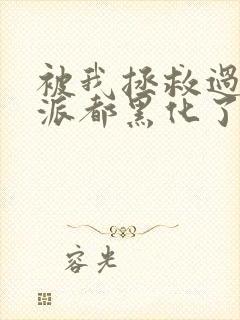 被我拯救過
派都黑化了
容光